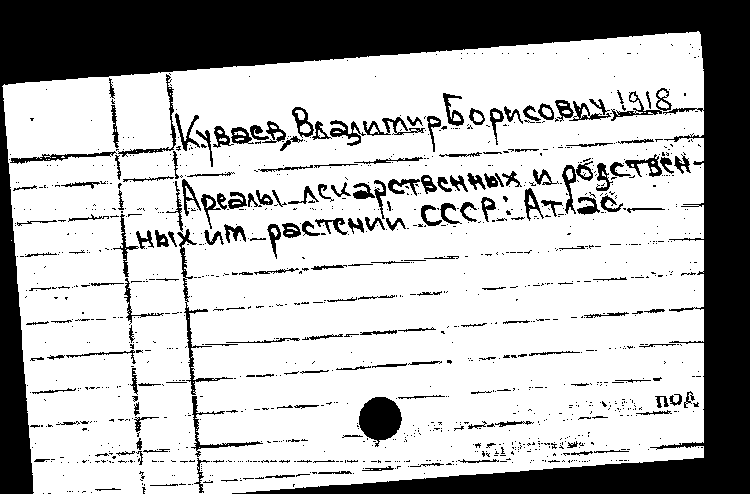 Куваев, Владимир Борисович, 1918
Ареалы лекарственных и родствен-
ных им растений СССР: Атлас.
под